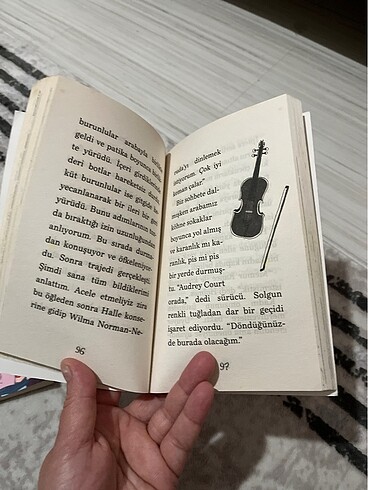 burunlular arabayla
geldi ve patika boyunca
te yürüdü. İçeri girdiklerinde
deri botlar hareketsiz
küt burunlular ise gitgide
yecanlanarak bir ileri bir geri
yürüdü. Bunu adımlarının tam
da bıraktığı izin uzunluğundan
anlıyorum. Bu sırada durma-
dan konuşuyor ve öfkeleniyor-
du. Sonra trajedi gerçekleşti.
Şimdi sana tüm bildiklerimi
anlattım. Acele etmeliyiz zira
bu öğleden sonra Halle konse-
rine gidip Wilma Norman-Ne-
96
ruda'yı dinlemek
istiyorum. Çok iyi
keman çalar."
Bir sohbete dal-
mışken arabamız
köhne sokaklar
boyunca yol almış
ve karanlık mı ka-
ranlık, pis mi pis
bir yerde durmuş-
tu. "Audrey Court
orada," dedi sürücü. Solgun
renkli tuğladan dar bir geçidi
işaret ediyordu. "Döndüğünüz-
de burada olacağım."
97